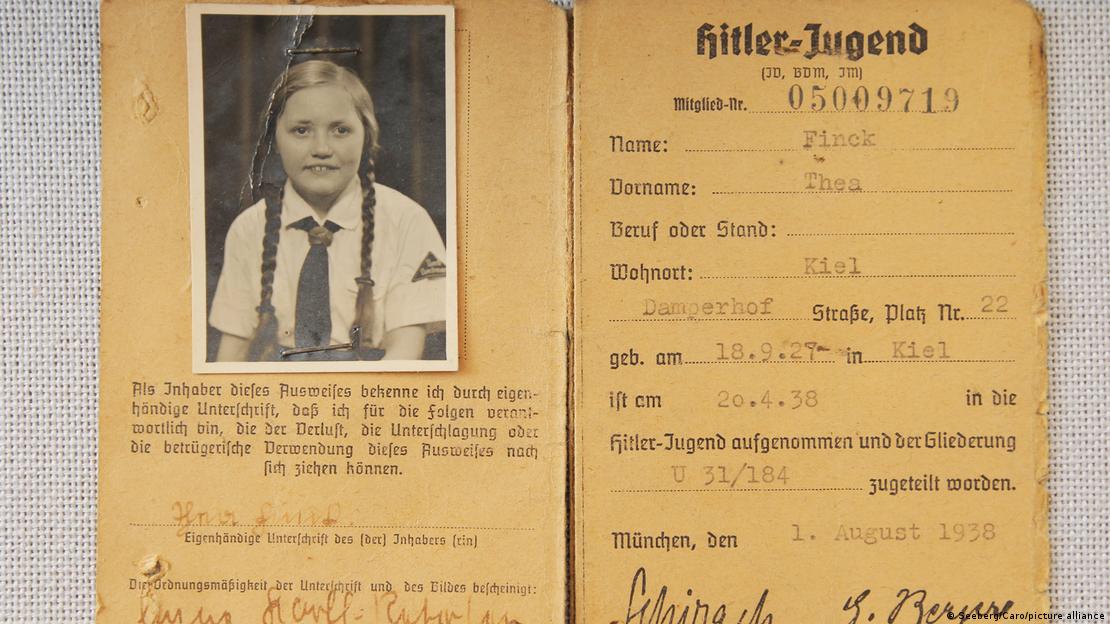 Als Inhaber dieses Ausweises bekenne ich durch eigen-
händige Unterschrift, daß ich für die Folgen verant-
wortlich bin, die der Verlust, die Unterschlagung oder
die betrügerische Verwendung dieses Ausweises nach
sich ziehen können.
Eigenhändige Unterschrift des (der) Inhabers (rin)
Die Ordnungsmäßigkeit der Unterschrift und des Bildes bescheinigt:
Hitler-Jugend
(JD, BDM, JM)
Mitglied-Nr. 05009719
Name: Finck
Vorname: Thea
Beruf oder Stand:
Wohnort: Kiel
Damperhof Straße, Platz Nr. 22
geb. am 18.9.27 in Kiel
ist am 20.4.38 in die
Hitler-Jugend aufgenommen und der Gliederung
U 31/184 zugeteilt worden.
München, den 1. August 1938
Schirach
© Seeberg/Caro/picture alliance